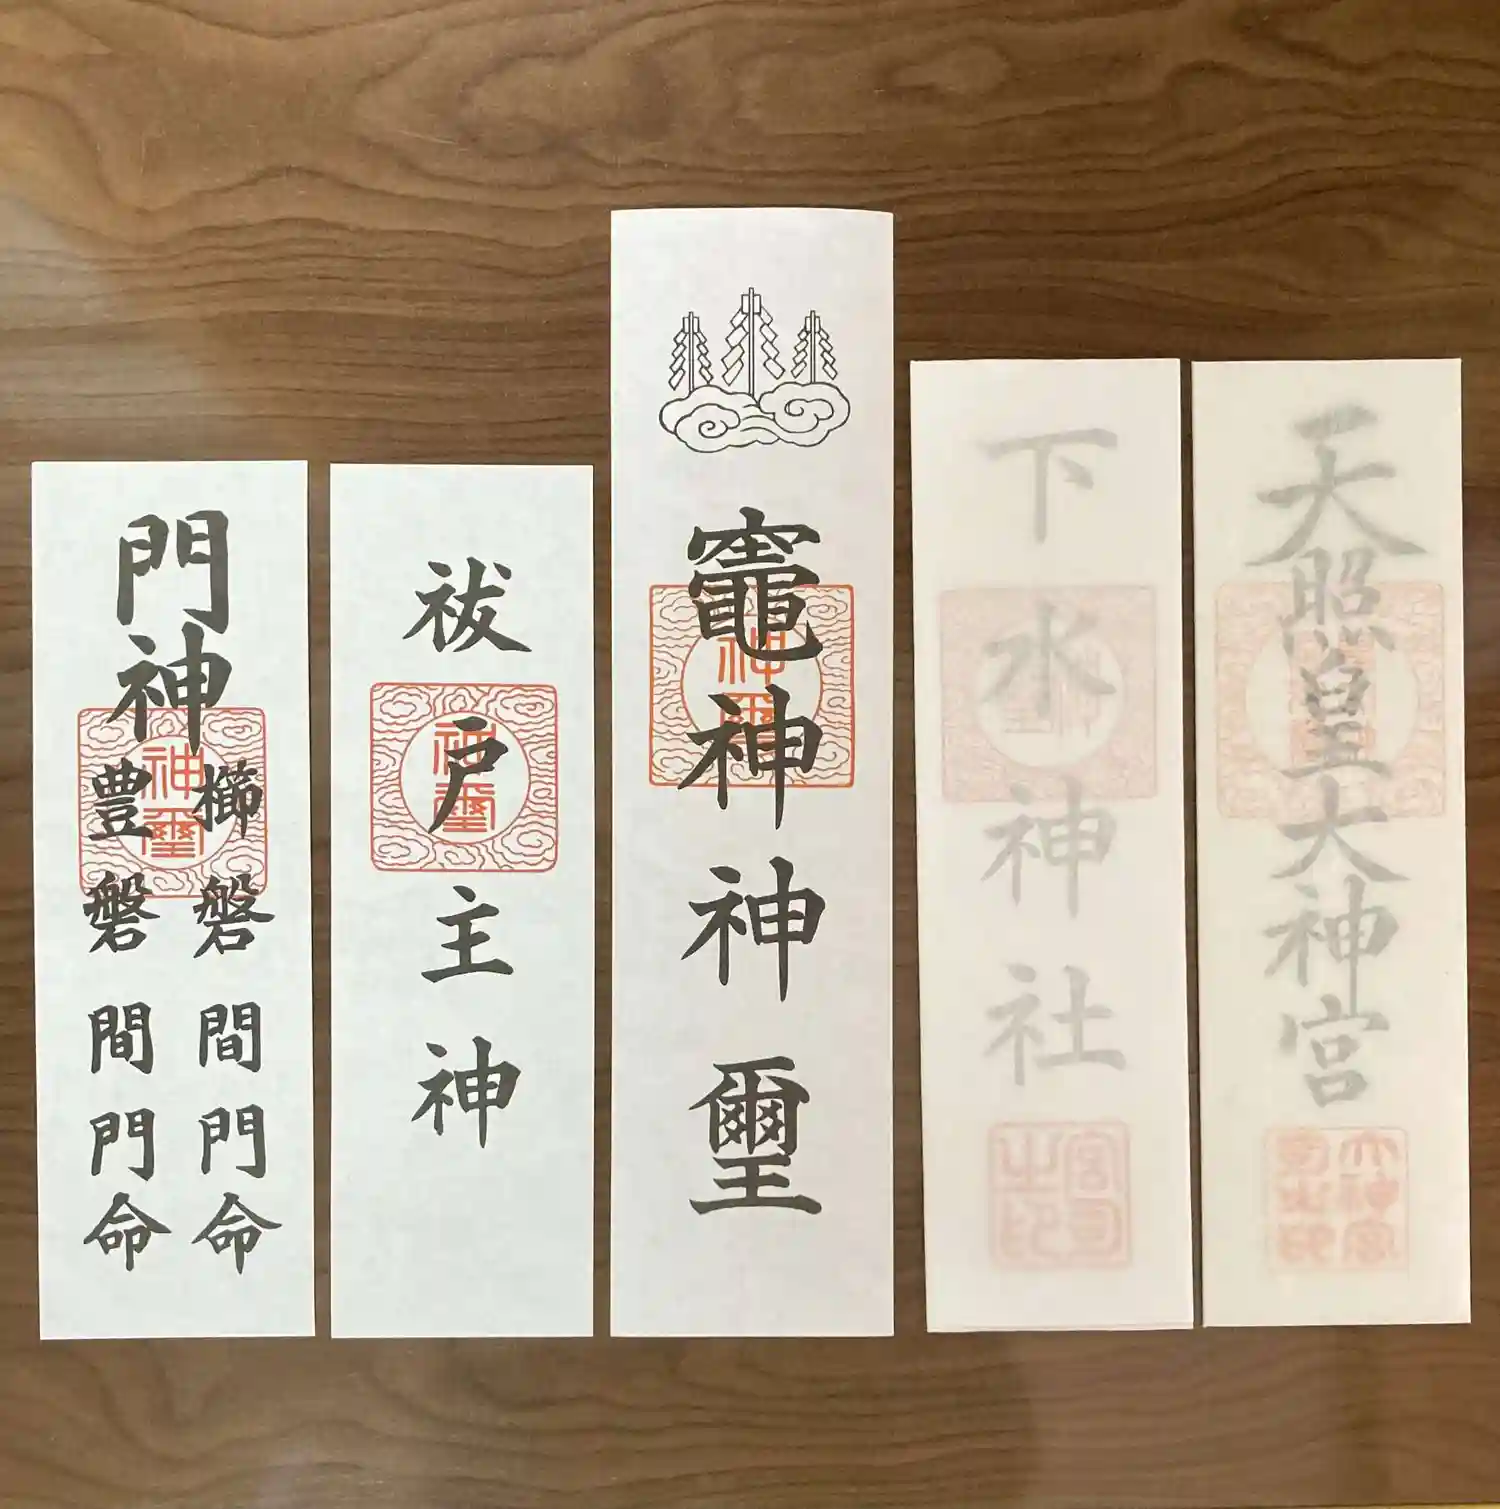 門神
櫛磐間門命
豊磐間門命
神璽
祓戸主神
神璽
竈神神璽
神璽
下水神社
宮司之印
天照皇大神宮
大神宮司之印